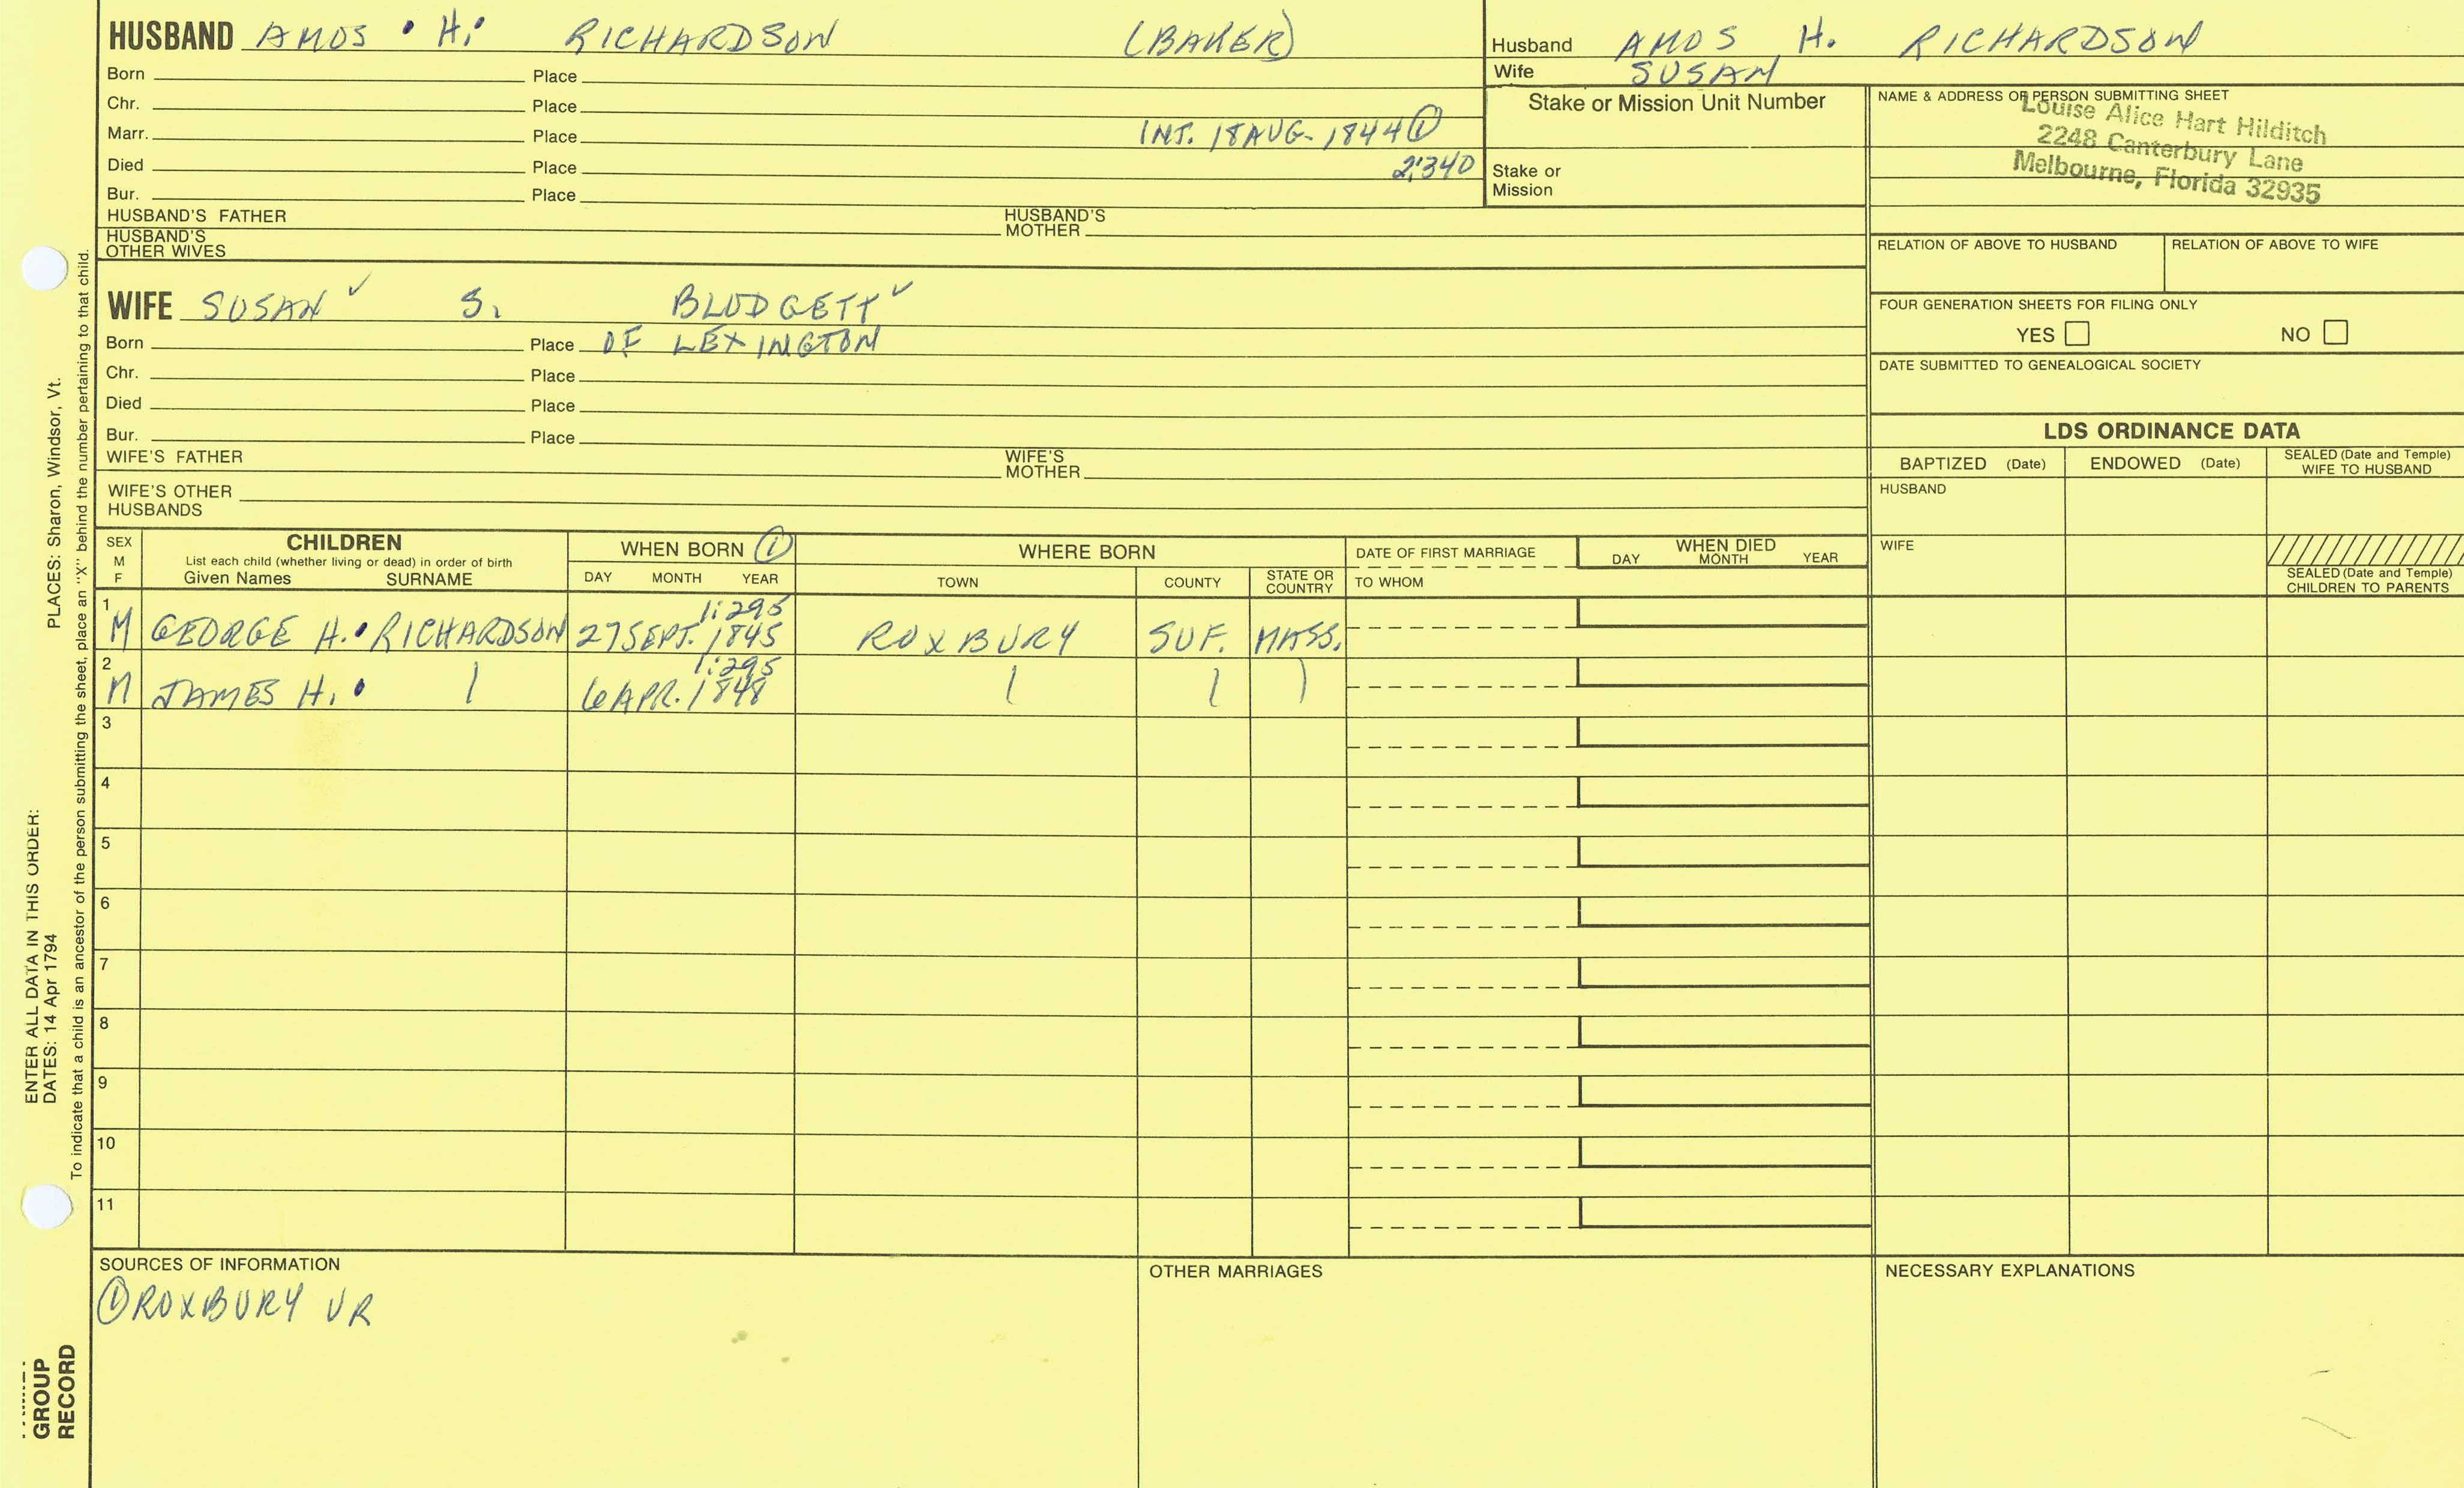 HUSBAND AMOS H. RICHARDSON (BAKER)
Born Place
Chr. Place
Marr. Place INT. 18 AUG. 1844 ①
Died Place 2:340
Bur. Place
HUSBAND'S FATHER HUSBAND'S MOTHER
HUSBAND'S OTHER WIVES
Husband AMOS H. RICHARDSON
Wife SUSAN
Stake or Mission Unit Number
Stake or Mission
NAME & ADDRESS OF PERSON SUBMITTING SHEET
Louise Alice Hart Hilditch
2248 Canterbury Lane
Melbourne, Florida 32935
RELATION OF ABOVE TO HUSBAND RELATION OF ABOVE TO WIFE
FOUR GENERATION SHEETS FOR FILING ONLY
YES NO
DATE SUBMITTED TO GENEALOGICAL SOCIETY
WIFE SUSAN ✓ S. BLODGETT ✓
Born Place OF LEXINGTON
Chr. Place
Died Place
Bur. Place
WIFE'S FATHER WIFE'S MOTHER
WIFE'S OTHER HUSBANDS
LDS ORDINANCE DATA
BAPTIZED (Date) ENDOWED (Date) SEALED (Date and Temple) WIFE TO HUSBAND
HUSBAND
WIFE
SEALED (Date and Temple) CHILDREN TO PARENTS
SEX M F
CHILDREN
List each child (whether living or dead) in order of birth
Given Names SURNAME
WHEN BORN ①
DAY MONTH YEAR
WHERE BORN
TOWN COUNTY STATE OR COUNTRY
DATE OF FIRST MARRIAGE
TO WHOM
WHEN DIED
DAY MONTH YEAR
1:295
1 M GEORGE H. RICHARDSON 27 SEPT. 1845 ROXBURY SUF. MASS.
1:295
2 M JAMES H. 6 APR. 1848
3
4
5
6
7
8
9
10
11
SOURCES OF INFORMATION
① ROXBURY VR
OTHER MARRIAGES
NECESSARY EXPLANATIONS
ENTER ALL DATA IN THIS ORDER:
DATES: 14 Apr 1794 PLACES: Sharon, Windsor, Vt.
To indicate that a child is an ancestor of the person submitting the sheet, place an "X" behind the number pertaining to that child.
GROUP
RECORD